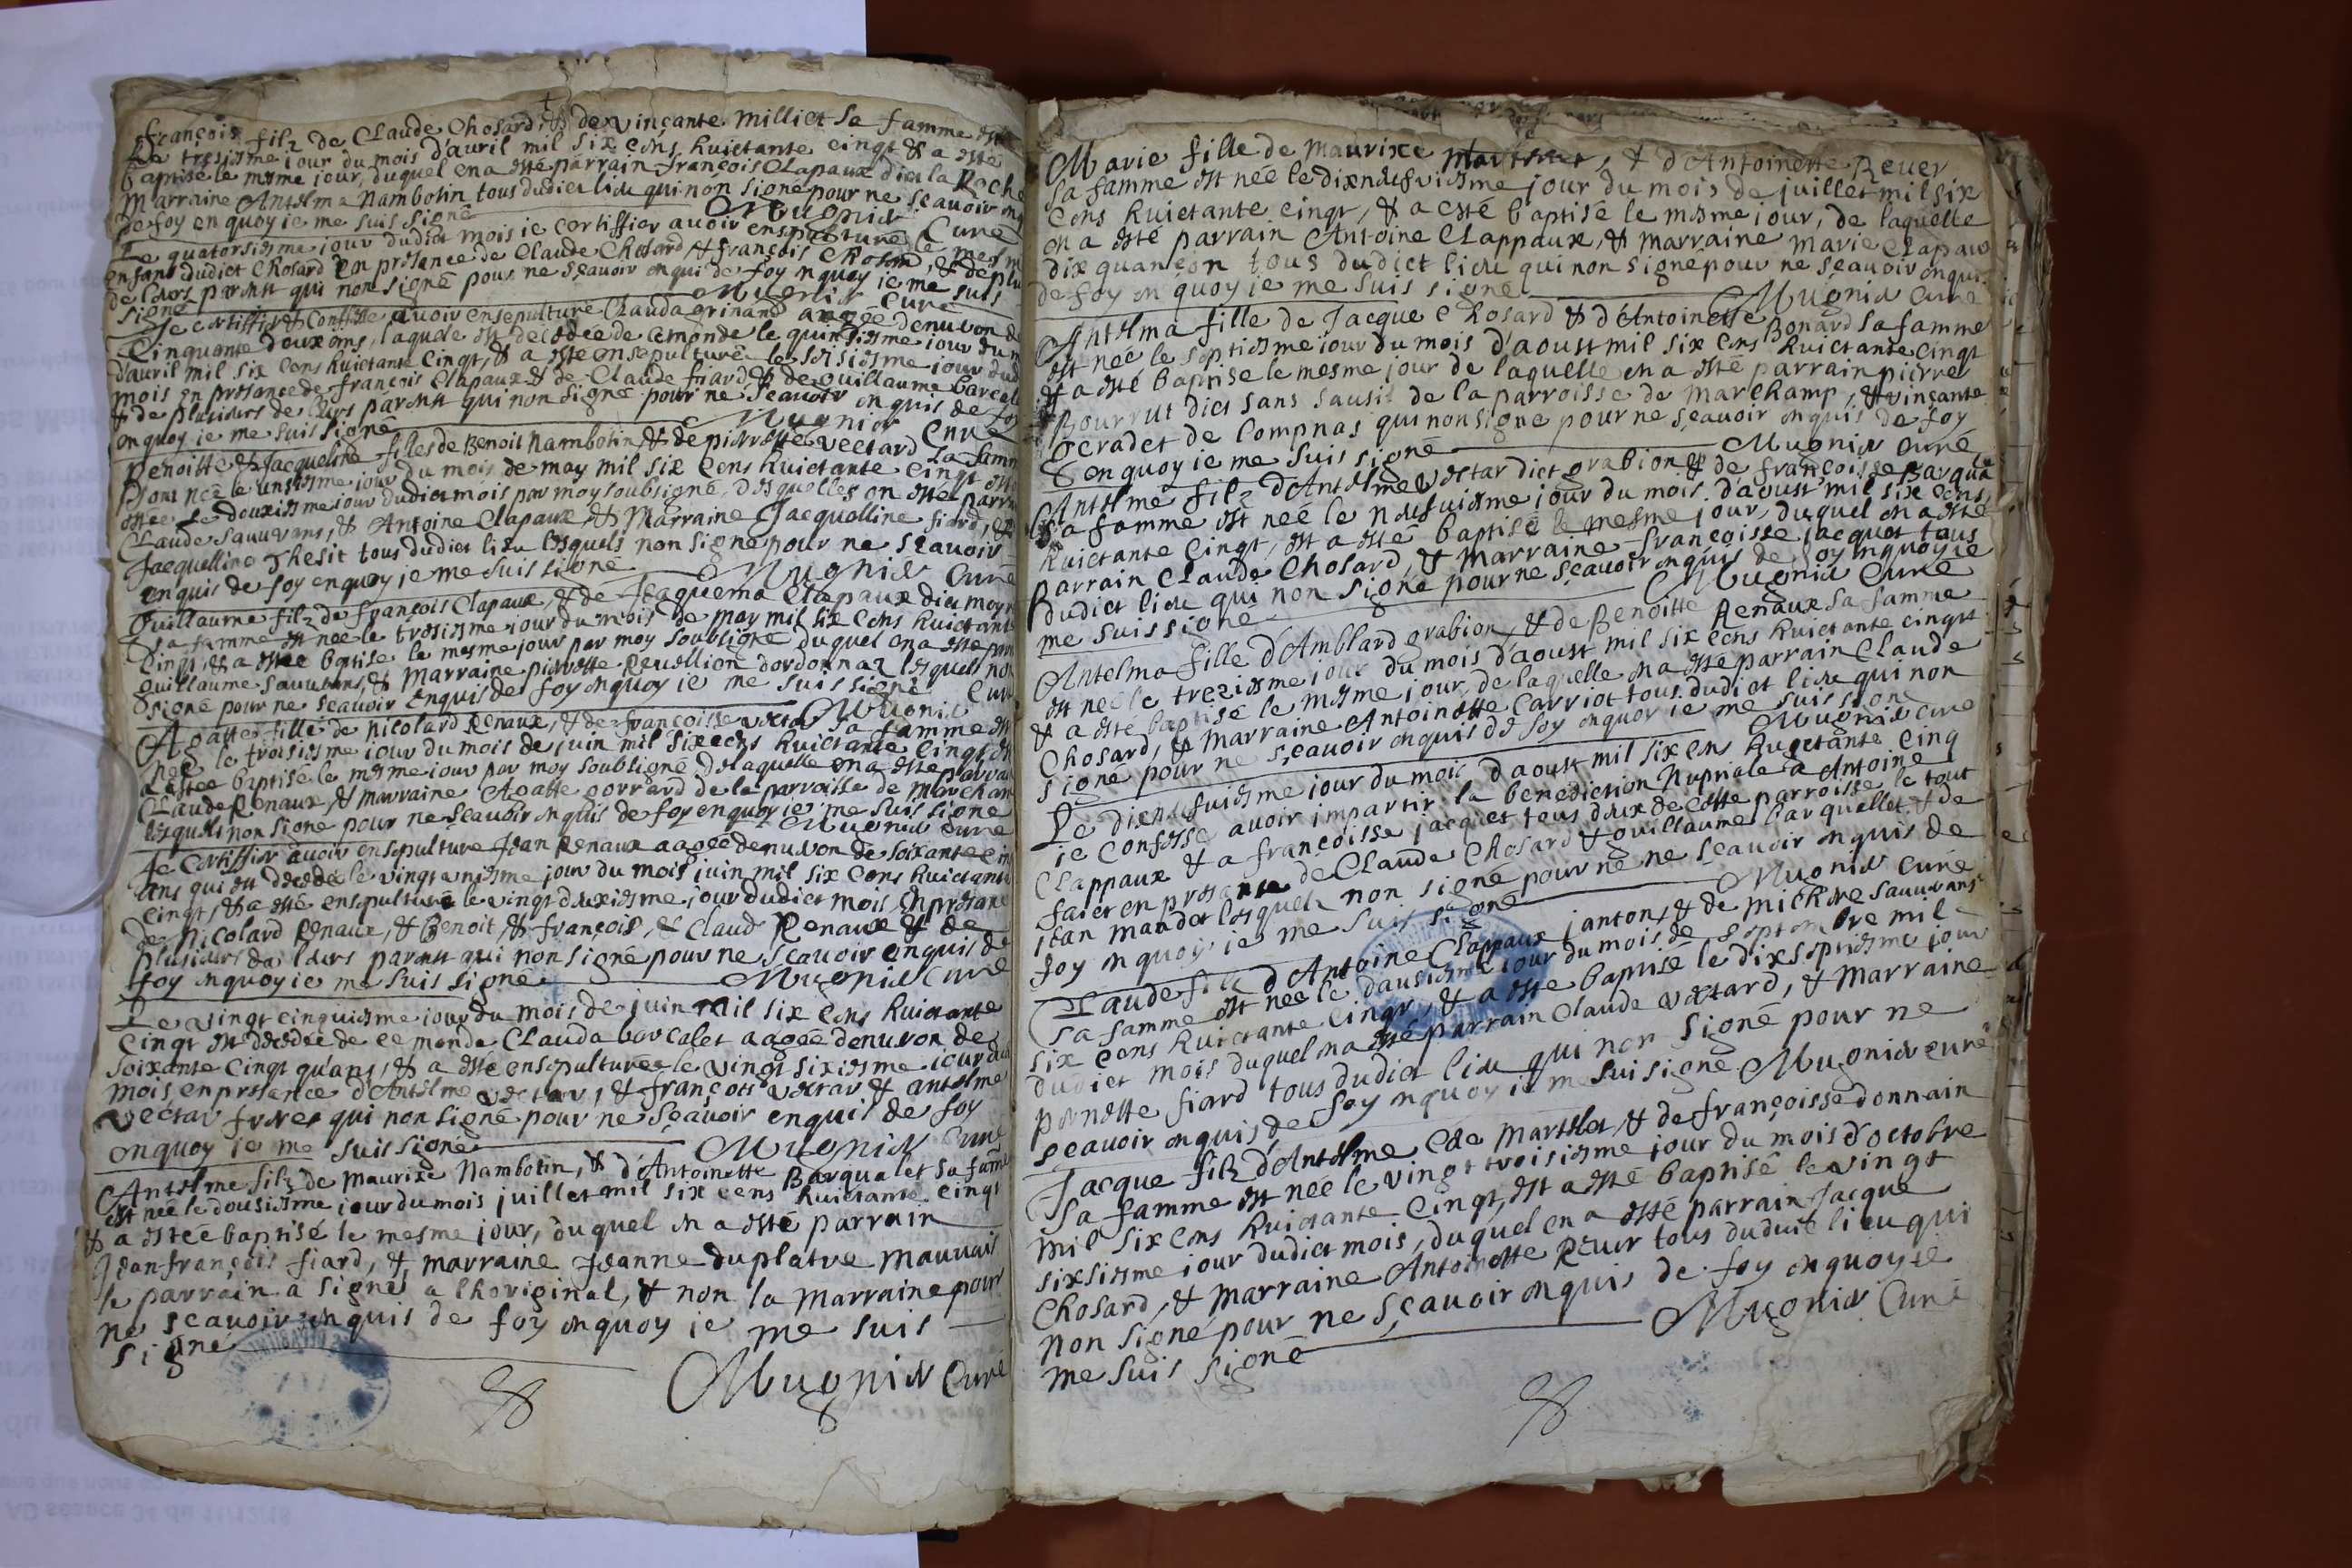 françois filz de Claude Chosard & de vinçante Milliet sa famme est
le tresiesme iour du mois d'avril mil six cens huictante cinqt & a esté
baptisé le mesme iour, duquel en a esté parrain françois Clapaux dict la Roche
marraine Antelma Nambotin tous dudict lieu qui non signé pour ne scavoir enq
de foy en quoy ie me suis signé Mugnier Curé
Le quatorsiesme iour dudict mois ie certiffier avoir ensepulturé le mesm
enfant dudict Chosard en presance de Claude Chosard & françois Chosard, & de plu
de leurs parent qui non signé pour ne sçavoir enqui de foy en quoy ie me suis
signé Mugnier Curé
Je certiffier & Confesse avoir ensepulturé Clauda grinand aagée denviron de
Cinquante deux ans, laquele est decedée de ce monde le quinsiesme iour du m
d'avril mil six cens huictante Cinqt, & a esté ensepulturée le seisiesme iour dud
mois en presance de françois Clapaux & de Claude fiard, & de guillaume barcale
& de plusieurs de leurs parent qui non signé pour ne sçavoir enquis de foy
en quoy ie me suis signé Mugnier Curé
Benoitte & Jacqueline filles de Benoit Nambotin, & de pierrette vectard sa famm
sont née le unsiesme iour du mois de may mil six Cens huictante cinqt ont
estée le douxiesme iour dudict mois par moy soubsigné, desquelles en esté parra
Claude Sauverans, & Antoine Clapaux & Marraine Jacquelline fiard, &
Jacquelline Thesit tous dudict lieu lesquels non signé pour ne scavoir
enquis de foy en quoy ie me suis signé Mugnier Curé
Guillaume filz de françois Clapaux, & de Jaquema Clapaux dict moyn
sa famme est née le trosiesme iour du mois de may mil six Cens huictante
Cinqt, & a estée baptisé le mesme jour par moy soubsigné duquel en a esté parr
guillaume Sauverans, & marraine pierrette Revellion dordonnaz lesquels non
signé pour ne scavoir enquis de foy en quoy ie me suis signé Mugnier Curé
Agatte fille de nicolard Renaux, & de françoisse vectar sa famme est
née le troisiesme iour du mois de juin mil six cens huictante Cinqt, &
a estée baptisé le mesme iour par moy soubsigné de laquelle en a esté parrai
Claude Renaux, & marraine Agatte gorrard de la parroisse de Marcham
lesquels non signé pour ne sçavoir enquis de foy en quoy ie me suis signé
Mugnier Curé
Je certiffier avoir ensepulturé Jean Renaux aagée denviron de soixante cin
ans qui est decedé le vingt uniesme jour du mois juin mil six Cens huictante
cinqt, & a esté ensepulturé le vingt deuxiesme jour dudict mois En presance
de Nicolard Renaux, & Benoit, & françois, & Claud Renaux & de
plusieurs de leurs parent qui non signé pour ne scavoir enquis de
foy en quoy ie me suis signé Mugnier Curé
Le vingt cinquiesme iour du mois de juin mil six Cens huictante
Cinqt est decedée de ce monde Clauda barcalet aagée denviron de
soixante Cinqt qu'ans, & a esté ensepulturée le vingt sixiesme iour du
mois en presance d'Antelme vectar, & françois vectar & antelme
vectar freres qui non signé pour ne sçavoir enquis de foy
en quoy ie me suis signé Mugnier Curé
Antelme filz de Maurixe Nambotin, & d'Antoinette Barqualet sa famme
est née le dousiesme iour du mois juillet mil six cens huictante cinqt
& a estée baptisé le mesme jour, duquel en a esté parrain
Jean françois fiard, & marraine Jeanne duplatre mauvais
le parrain a signé a lhoriginal, & non la marraine pour
ne sçavoir enquis de foy en quoy ie me suis
signé
Mugnier Curé
Marie fille de Maurixe & d'Antoinette Rever
sa famme est née le dixneufviesme jour du mois de juillet mil six
Cens huictante cinqt, & a esté baptisé le mesme iour, de laquelle
en a esté parrain Antoine Clappaux, & marraine Marie Clapaux
dix quançon tous dudict lieu qui non signé pour ne sçavoir enquis
de foy en quoy ie me suis signé Mugnier Curé
Antelma fille de Jacque Chosard & d'Antoinette Bonard sa famme
est née le septiesme iour du mois d'aoust mil six cens huictante Cinqt
& a esté baptisé le mesme jour de laquelle en a esté parrain pierre
Bourrut dict sans sausit de la parroisse de Marchamp, & vinçante
gcradet de Compnas qui non signé pour ne sçavoir enquis de foy
en quoy ie me suis signé Mugnier Curé
Antelme filz d'Antelme vectar dict grabion & de françoisse Barqualet
sa famme est née le neufviesme jour du mois d'aoust mil six cens
huictante Cinqt, est a esté baptisé le mesme jour, duquel en a esté
parrain Claude Chosard, & Marraine françoisse jacquet tous
dudict lieu qui non signé pour ne sçavoir enquis de foy en quoy ie
me suis signé Mugnier Curé
Antelma fille d'Amblard grabion, & de Benoitte Renaux sa famme
est née le treziesme jour du mois d'aoust mil six cens huictante cinqt
& a esté baptisé le mesme jour, de laquelle en a esté parrain Claude
Chosard, & Marraine Antoinette Carriot tous dudict lieu qui non
signé pour ne sçavoir enquis de foy en quoy ie me suis signé
Mugnier Curé
Le dixneufuiesme jour du mois d'aoust mil six cens huictante Cinq
ie Confesse avoir impartir la benediction Nuptiale a Antoine
Clappaux & a françoisse jacquet tous deux de cette parroisse, le tout
faict en presance de Claude Chosard & guillaume barquallet & de
jean mandet lesquels non signé pour ne ne sçavoir enquis de
foy en quoy ie me suis signé Mugnier Curé
Claude filz d'Antoine Clappaux janton, & de Michée Sauverans
sa famme est née le dausiesme iour du mois de septembre mil
six cens huictante Cinqt, & a esté baptisé le dixseptiesme jour
dudict mois duquel en a esté parrain Claude vectard, & Marraine
pernette fiard tous dudict lieu qui non signé pour ne
sçavoir enquis de foy en quoy ie me suis signé Mugnier Curé
Jacque filz d'Antelme Cde Martelet, & de françoisse donnain
sa famme est née le vingt troisiesme jour du mois d'octobre
mil six Cens huictante Cinqt, est a esté baptisé le vingt
sixsiesme iour dudict mois, duquel en a esté parrain Jacque
Chosard, & marraine Antoinette Rever tous dudict lieu qui
non signé pour ne sçavoir enquis de foy en quoy ie
me suis signé Mugnier Curé